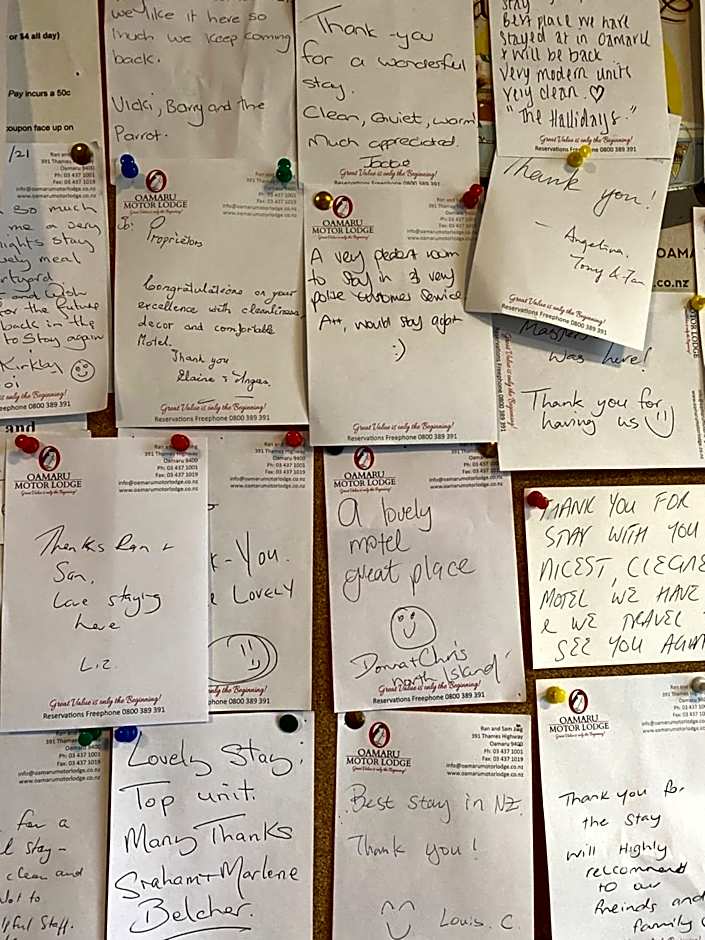 or $4 all day)
Pay incurs a 50c
coupon face up on
we like it here so
much we keep coming
back.
Vicki, Barry and the
Parrot.
Thank-you
for a wonderful
stay.
Clean, Quiet, warm
Much appreciated.
Jackie
Great Value is only the Beginning!
Reservations Freephone 0800 389 391
stay
Best place we have
stayed at in Oamaru
& will be back
Very modern units
very clean. ♡
"The Hallidays."
Great Value is only the Beginning!
Reservations Freephone 0800 389 391
/21
391 Thames
Oamaru 9400
Ph: 03 437 1001
Fax: 03 437 1019
info@oamarumotorlodge.co.nz
www.oamarumotorlodge.co.nz
so much
me a very
ights stay
vely meal
rtyard
and wish
for the future
back in the
to stay again
Kirkby ☺
Beginning!
Freephone 0800 389 391
OAMARU
MOTOR LODGE
Great Value is only the Beginning!
391 Thames Highway
Oamaru 9400
Ph: 03 437 1001
Fax: 03 437 1019
info@oamarumotorlodge.co.nz
www.oamarumotorlodge.co.nz
Proprietors
Congratulations on your
excellence with cleanliness,
decor and comfortable
Motel.
Thank you
Elaine & Angus.
Great Value is only the Beginning!
Reservations Freephone 0800 389 391
OAMARU
MOTOR LODGE
Great Value is only the Beginning!
391 Thames Highway
Oamaru 9400
Ph: 03 437 1001
Fax: 03 437 1019
info@oamarumotorlodge.co.nz
www.oamarumotorlodge.co.nz
A very room
to stay in & very
polite customer service
A++, would stay again
:)
Great Value is only the Beginning!
Reservations Freephone 0800 389 391
Thank you!
- Angelina,
Tony & Ian
Great Value is only the Beginning!
Reservations Freephone 0800 389 391
OAMA
.co.nz
MOTOR LODGE
was here!
Thank you for
having us
Great Value is only the Beginning!
Reservations Freephone 0800 389 391
and
OAMARU
MOTOR LODGE
Great Value is only the Beginning!
391 Thames Highway
Oamaru 9400
Ph: 03 437 1001
Fax: 03 437 1019
info@oamarumotorlodge.co.nz
www.oamarumotorlodge.co.nz
Thanks Ran +
Sam,
Love staying
here
Liz.
Great Value is only the Beginning!
Reservations Freephone 0800 389 391
391 Thames Highway
Oamaru 9400
Ph: 03 437 1001
Fax: 03 437 1019
info@oamarumotorlodge.co.nz
www.oamarumotorlodge.co.nz
k-You.
LOVELY
is only the Beginning!
Freephone 0800 389 391
OAMARU
MOTOR LODGE
Great Value is only the Beginning!
Oamaru 9400
Ph: 03 437 1001
Fax: 03 437 1019
info@oamarumotorlodge.co.nz
www.oamarumotorlodge.co.nz
A lovely
motel
great place
Donna + Chris
north Island
Great Value is only the Beginning!
Reservations Freephone 0800 389 391
THANK YOU FOR
STAY WITH YOU
NICEST, CLEANE
MOTEL WE HAVE
& WE TRAVEL
SEE YOU AGAIN
391 Thames
Oamaru 9400
Ph: 03 437 1001
Fax: 03 437 1019
info@oamarumotorlodge.co.nz
www.oamarumotorlodge.co.nz
for a
l stay -
clean and
lpful Staff.
Lovely Stay:
Top unit.
Many Thanks
Graham + Marlene
Belcher.
OAMARU
MOTOR LODGE
Great Value is only the Beginning!
Ran and Sam Jag
391 Thames Highway
Oamaru 9400
Ph: 03 437 1001
Fax: 03 437 1019
info@oamarumotorlodge.co.nz
www.oamarumotorlodge.co.nz
Best stay in NZ.
Thank you!
Louis. C.
OAMARU
MOTOR LODGE
Great Value is only the Beginning!
Ran and
391 Thames
Ph:
Fax:
info@oamarumotor
www.oamarumotor
Thank you for
the stay
will Highly
reccommend
to our
freinds and
family